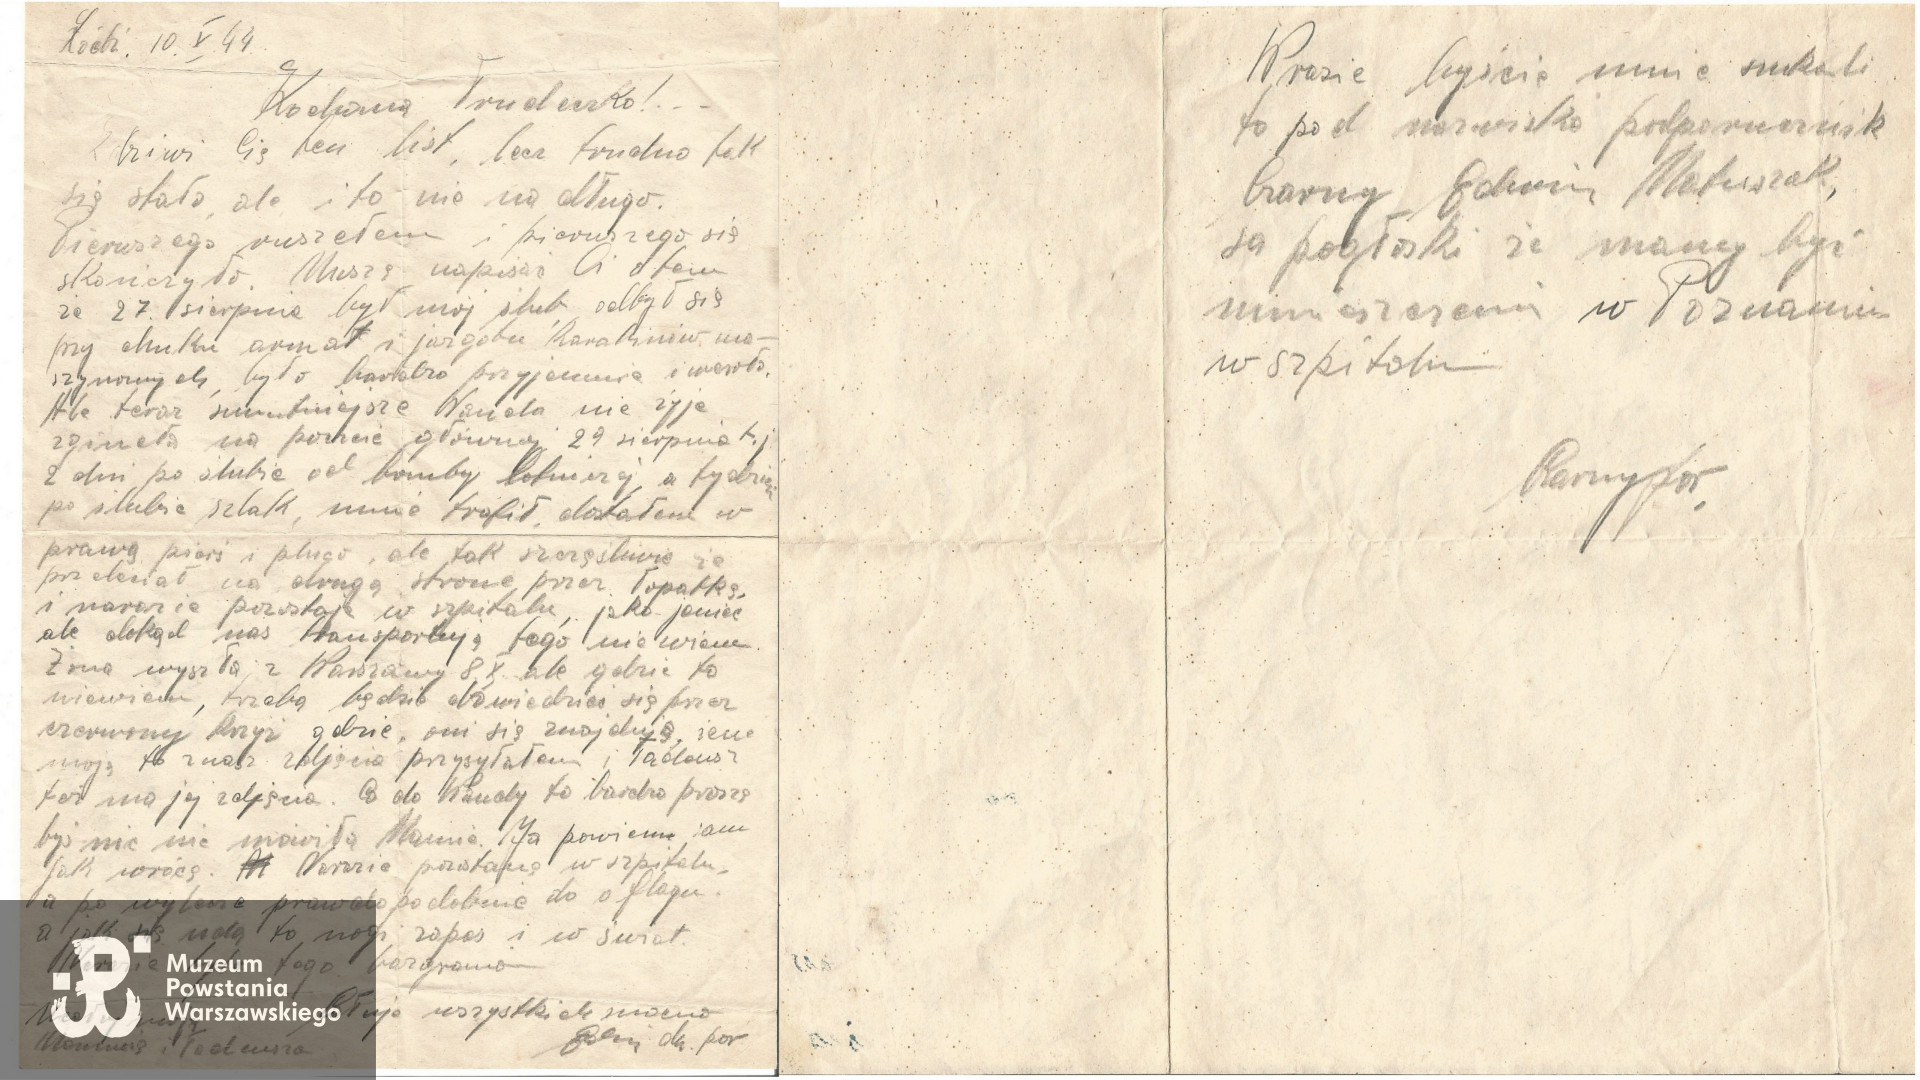 Łódź, 10.X.44
Kochana Trudeczko!...
Zdziwi Cię ten list, lecz trudno tak
się stało, ale i to nie na długo.
Pierwszego ruszełem i pierwszego się
skończyło. Muszę napisać Ci o tem
że 27. sierpnia był mój ślub, odbył się
przy chuku armat i jazgotu karabinów ma-
szynowych, było bardzo przyjemnie i wesoło.
Ale teraz smutniejsze Wanda nie żyje
zgineła na poczcie głównej 29 sierpnia t.j
2 dni po ślubie od bomby lotniczej, a tydzień
po ślubie szlak, mnie trafił, dostałem w
prawą pierś i płuco, ale tak szczęśliwie że
przeleciał na drugą stronę przez łopatkę,
i narazie pozostaję w szpitalu, jako jeniec
ale dokąd nas transportują tego nie wiem.
Żona wyszła z Warszawy 8.X. ale gdzie to
niewiem, trzeba będzie dowiedzieć się przez
czerwony krzyż gdzie, oni się znajdują, żenę
moją to znasz zdjęcia przysyłałem i Tadeusz
też ma jej zdjęcia. Co do Wandy to bardzo proszę
byś nic nie mówiła Mamie. Ja powiem sam
jak wrócę. Narazie pozostanę w szpitalu,
a po wylecze prawdopodobnie do oflagu.
a jak się uda to nogi zapas i w świat.
tego bazgrania
wszystkich mocno
Edwin dr. por
i Tadeusza
Wrazie byście mnie szukali
to pod nazwisko podporucznik
Czarny Edwin Matuszak,
są pogłoski że mamy być
umieszczeni w Poznaniu
w szpitalu
Czarny por,
Muzeum
Powstania
Warszawskiego